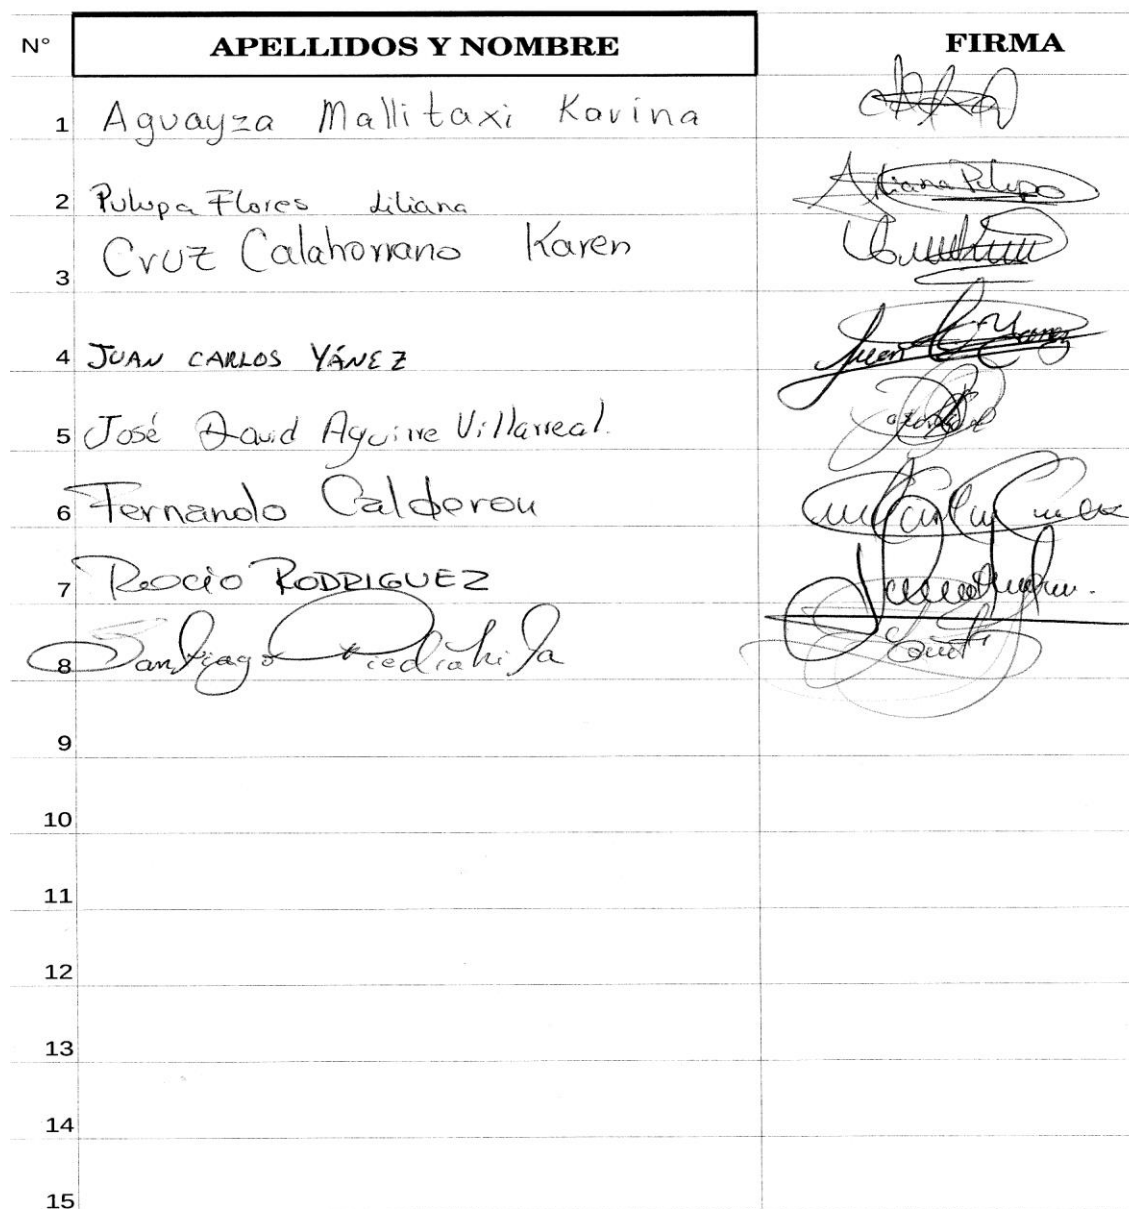 N° APELLIDOS Y NOMBRE FIRMA
1 Aguayza Mallitaxi Karina
2 Pulupa Flores Liliana Liliana Pulupa
3 Cruz Calahorrano Karen
4 JUAN CARLOS YÁNEZ Juan C Yanez
5 José David Aguirre Villarreal.
6 Fernando Calderon
7 Rocío RODRIGUEZ
8 Santiago Piedrahita
9
10
11
12
13
14
15